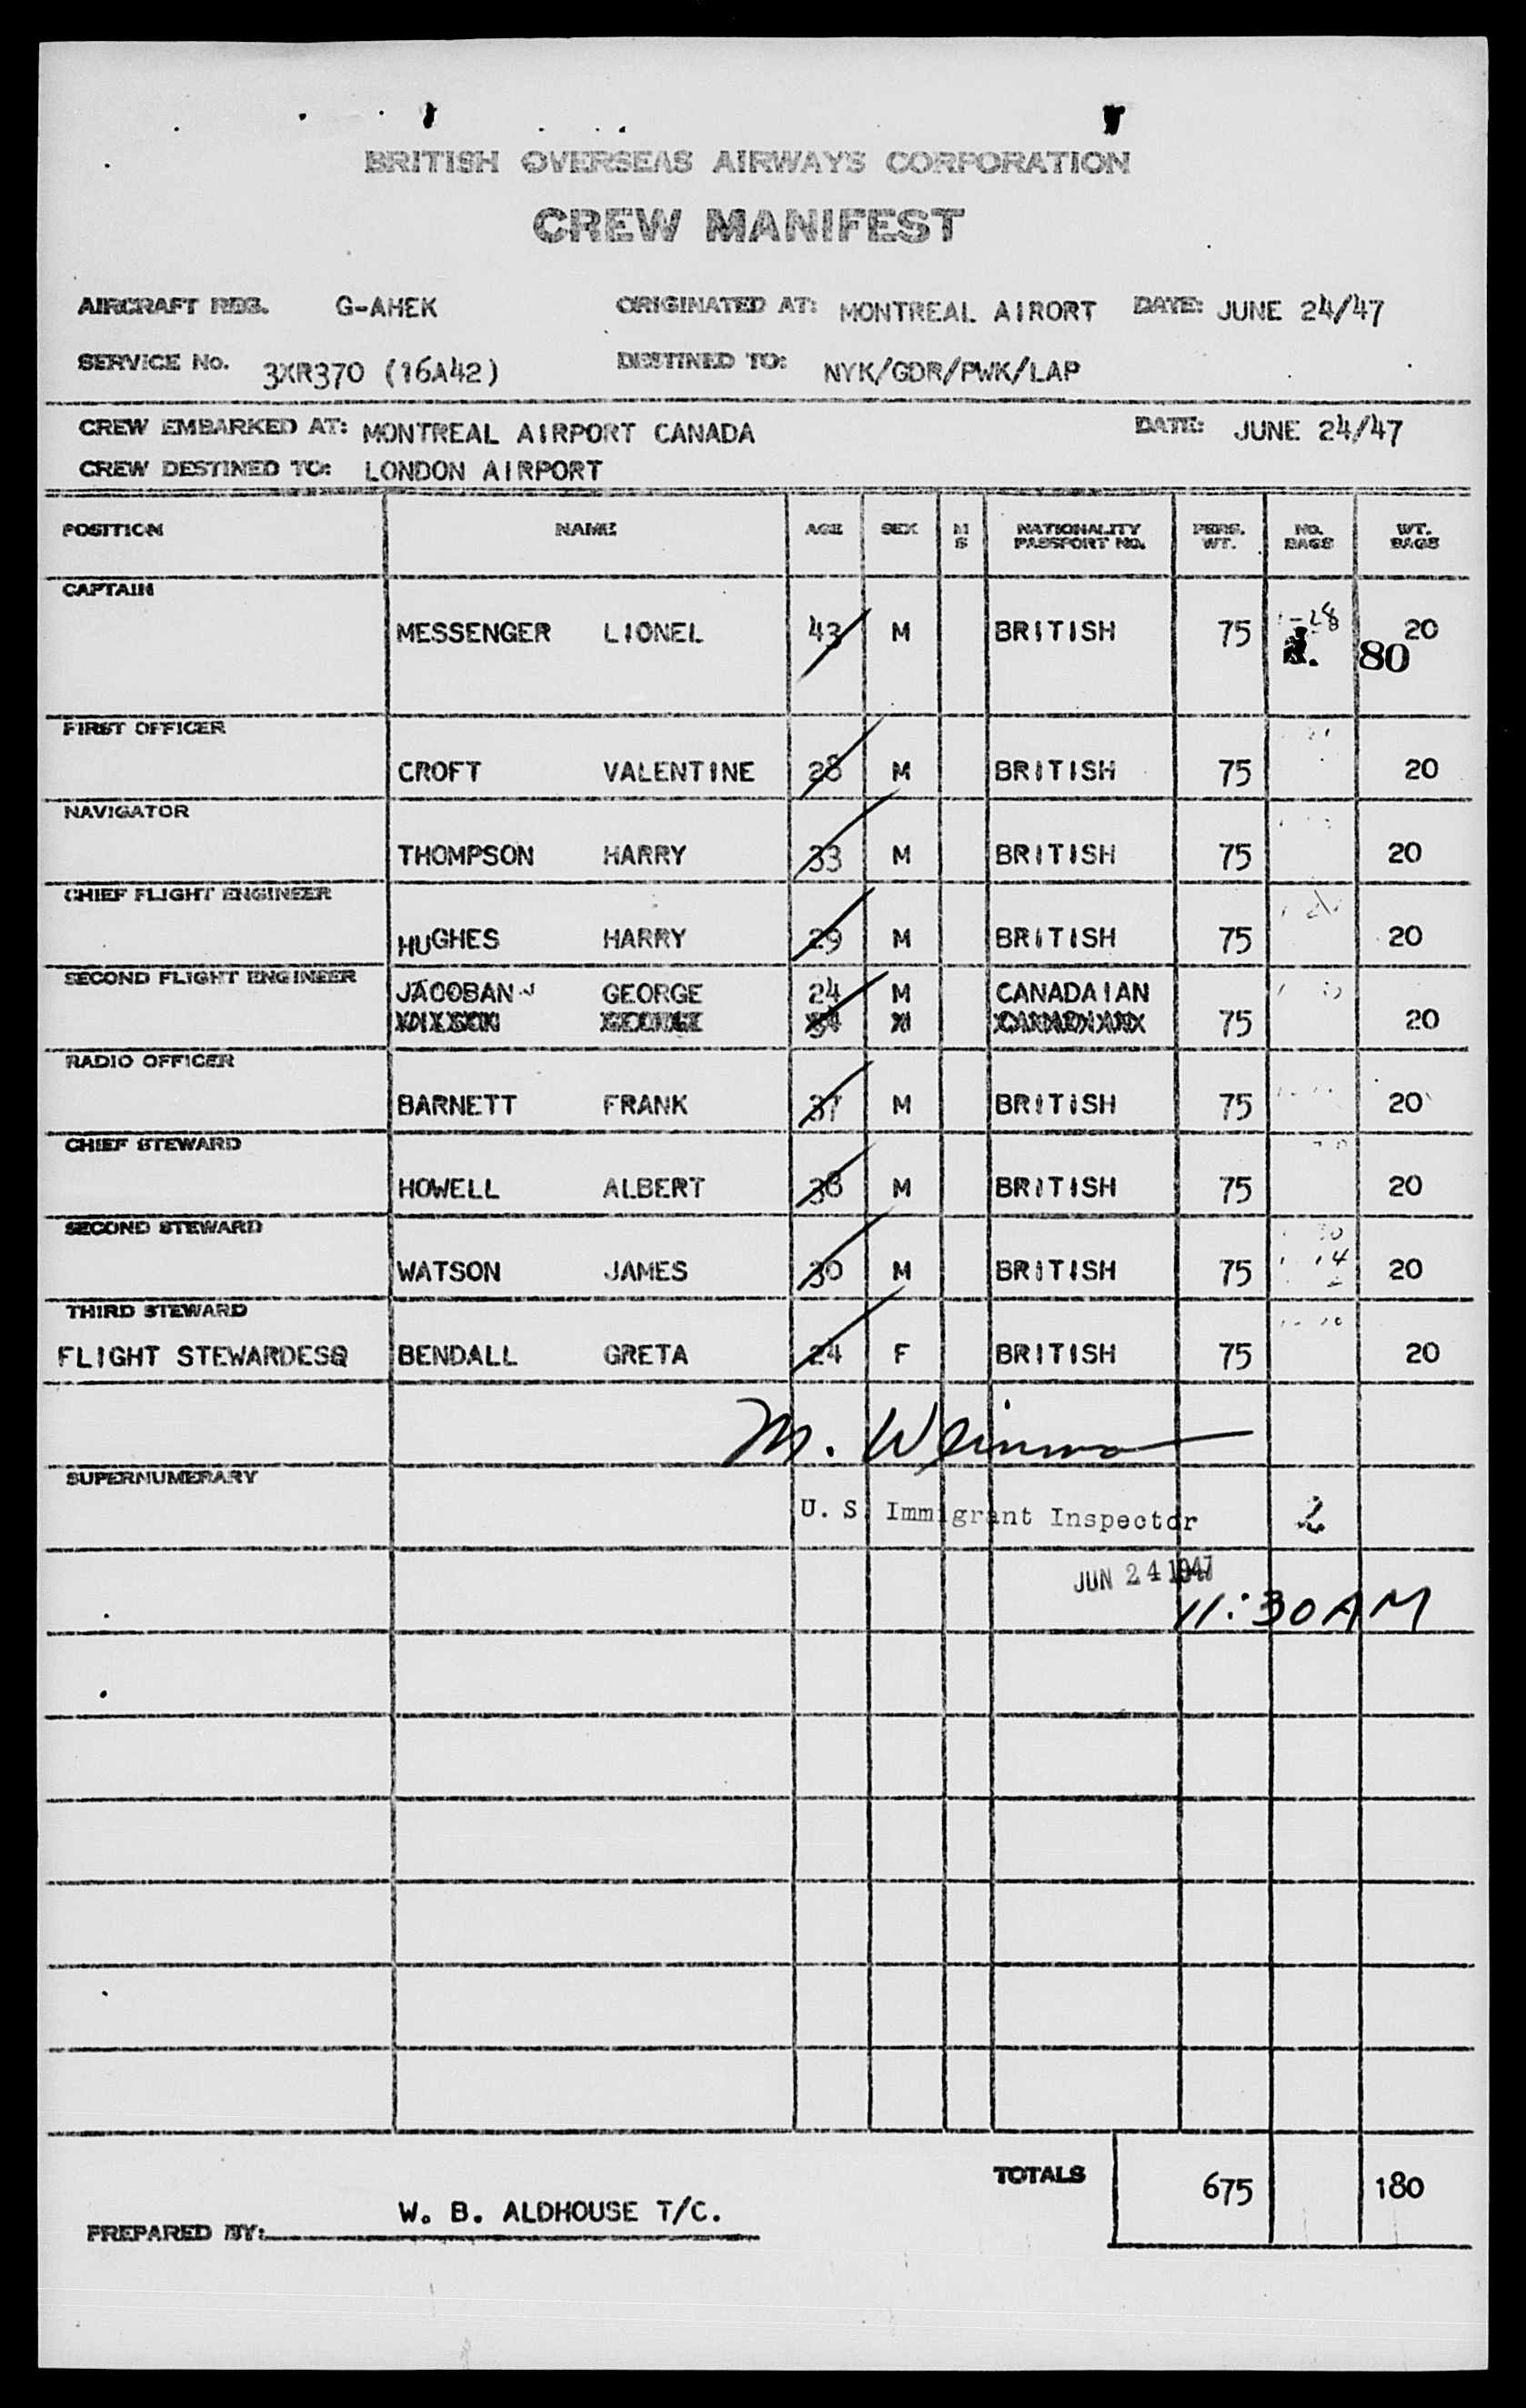 BRITISH OVERSEAS AIRWAYS CORPORATION
CREW MANIFEST
AIRCRAFT REG. G-AHEK ORIGINATED AT: MONTREAL AIRORT DATE: JUNE 24/47
SERVICE No. 3XR370 (16A42) DESTINED TO: NYK/GDR/PWK/LAP
CREW EMBARKED AT: MONTREAL AIRPORT CANADA DATE: JUNE 24/47
CREW DESTINED TO: LONDON AIRPORT
POSITION NAME AGE SEX M S NATIONALITY PASSPORT NO. PERS. WT. NO. BAGS WT. BAGS
CAPTAIN
MESSENGER LIONEL 43 M BRITISH 75 20
80
FIRST OFFICER
CROFT VALENTINE 28 M BRITISH 75 20
NAVIGATOR
THOMPSON HARRY 33 M BRITISH 75 20
CHIEF FLIGHT ENGINEER
HUGHES HARRY 29 M BRITISH 75 20
SECOND FLIGHT ENGINEER
JACOBAN GEORGE 24 M CANADAIAN
75 20
RADIO OFFICER
BARNETT FRANK 37 M BRITISH 75 20
CHIEF STEWARD
HOWELL ALBERT 36 M BRITISH 75 20
SECOND STEWARD
WATSON JAMES 30 M BRITISH 75 14 20
THIRD STEWARD
FLIGHT STEWARDESS BENDALL GRETA 24 F BRITISH 75 20
M.
SUPERNUMERARY
U. S. Immigrant Inspector 2
JUN 24 1947
11:30 AM
TOTALS 675 180
W. B. ALDHOUSE T/C.
PREPARED BY: